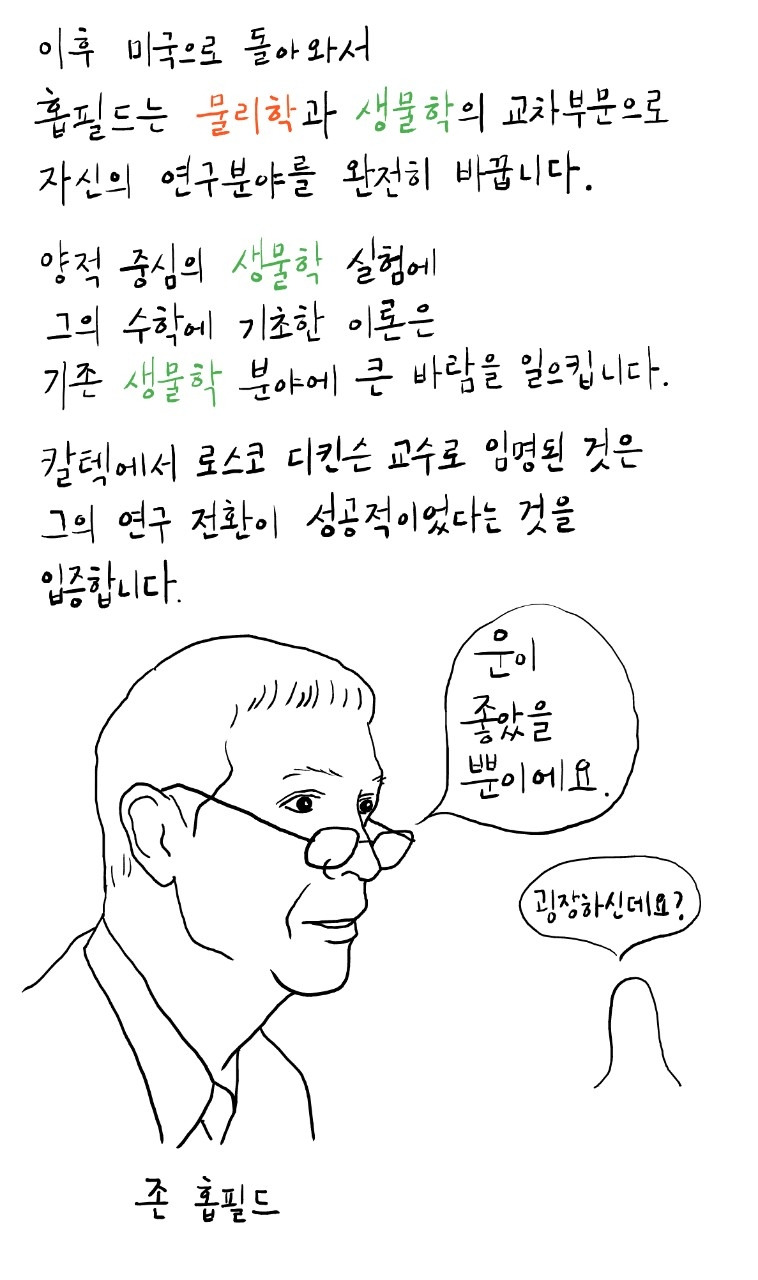 이후 미국으로 돌아와서
홉필드는 물리학과 생물학의 교차부문으로
자신의 연구분야를 완전히 바꿉니다.
양적 중심의 생물학 실험에
그의 수학에 기초한 이론은
기존 생물학 분야에 큰 바람을 일으킵니다.
칼텍에서 로스코 디킨슨 교수로 임명된 것은
그의 연구 전환이 성공적이었다는 것을
입증합니다.
운이
좋았을
뿐이에요.
굉장하신데요?
존 홉필드